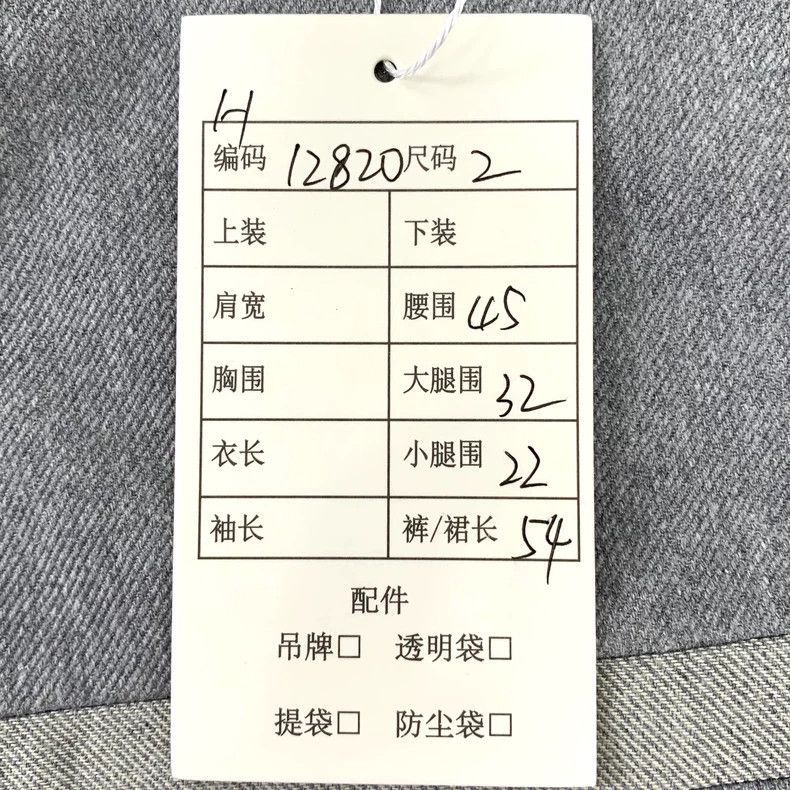 H
编码 12820 尺码 2
上装 下装
肩宽 腰围 45
胸围 大腿围 32
衣长 小腿围 22
袖长 裤/裙长 54
配件
吊牌□ 透明袋□
提袋□ 防尘袋□